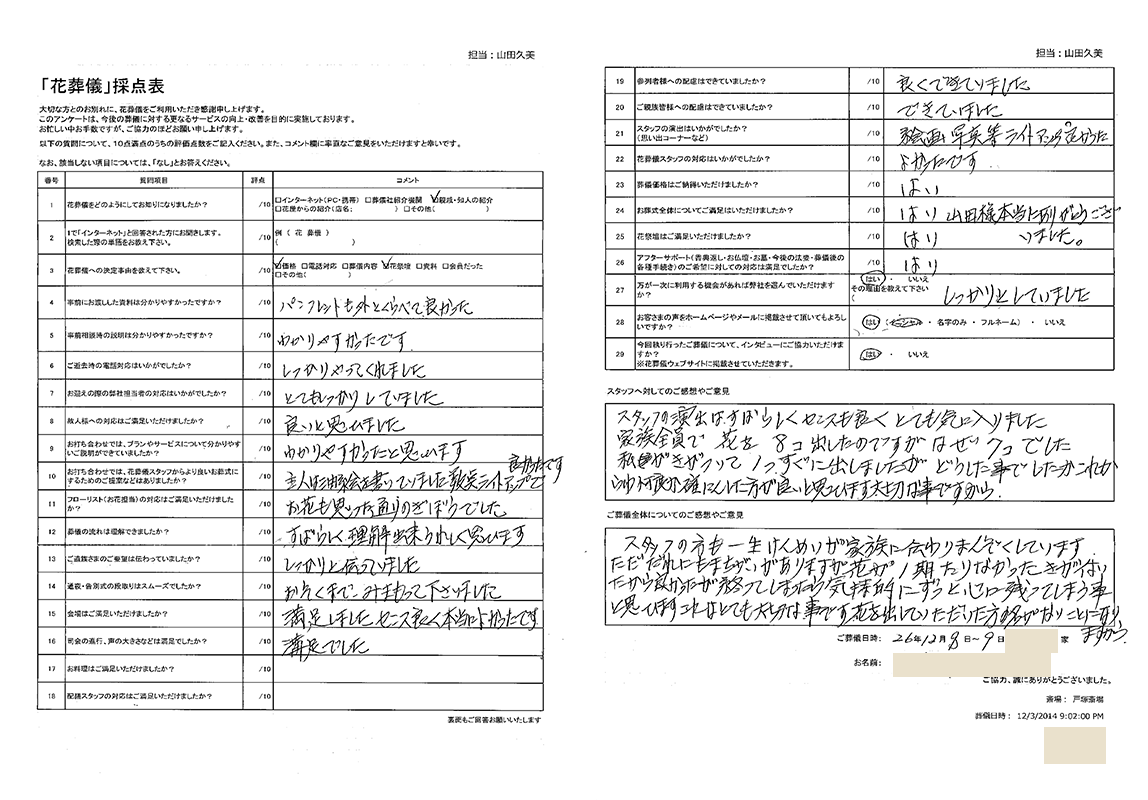 担当：山田久美
「花葬儀」採点表
大切な方とのお別れに、花葬儀をご利用いただき感謝申し上げます。
このアンケートは、今後の葬儀に対する更なるサービスの向上・改善を目的に実施しております。
お忙しい中お手数ですが、ご協力のほどお願い申し上げます。
以下の質問について、10点満点のうちの評価点数をご記入ください。また、コメント欄に率直なご意見をいただけますと幸いです。
なお、該当しない項目については、「なし」とお答えください。
番号 質問項目 評点 コメント
1 花葬儀をどのようにしてお知りになりましたか？ /10 □インターネット(PC・携帯) □葬儀社紹介機関 ☑親戚・知人の紹介
□花屋からの紹介(店名： ) □その他( )
2 1で「インターネット」と回答された方にお聞きします。
検索した際の単語をお教え下さい。 /10 例 ( 花 葬儀 )
( )
3 花葬儀への決定事由を教えて下さい。 /10 ☑価格 □電話対応 □葬儀内容 ☑花祭壇 □資料 □会員だった
□その他( )
4 事前にお渡しした資料は分かりやすかったですか？ /10 パンフレットも外とくらべて良かった
5 事前相談時の説明は分かりやすかったですか？ /10 わかりやすかったです
6 ご逝去時の電話対応はいかがでしたか？ /10 しっかりやってくれました
7 お迎えの際の弊社担当者の対応はいかがでしたか？ /10 とてもしっかりしていました
8 故人様への対応はご満足いただけましたか？ /10 良いと思いました
9 お打ち合わせでは、プランやサービスについて分かりやす
いご説明ができていましたか？ /10 わかりやすかったと思います
10 お打ち合わせでは、花葬儀スタッフからより良いお葬式に
するためのご提案などはありましたか？ /10 主人は油絵を書いていました ライトアップで
良かったです
11 フローリスト(お花担当)の対応はご満足いただけました
か？ /10 お花も思った通りのきぼうでした
12 葬儀の流れは理解できましたか？ /10 すばらしく理解出来うれしく思います
13 ご遺族さまのご要望は伝わっていましたか？ /10 しっかりと伝っていました
14 通夜・告別式の段取りはスムーズでしたか？ /10 おそくまでみまもって下さいました
15 会場はご満足いただけましたか？ /10 満足しましたセンス良く本当によかったです
16 司会の進行、声の大きさなどは満足でしたか？ /10 満足でした
17 お料理はご満足いただけましたか？ /10
18 配膳スタッフの対応はご満足いただけましたか？ /10
裏面もご回答お願いいたします
担当：山田久美
19 参列者様への配慮はできていましたか？ /10 良くできていました
20 ご親族皆様への配慮はできていましたか？ /10 できていました
21 スタッフの演出はいかがでしたか？
(思い出コーナーなど) /10 絵画、写真等ライトアップ良かった
22 花葬儀スタッフの対応はいかがでしたか？ /10 よかったです
23 葬儀価格はご納得いただけましたか？ /10 はい
24 お葬式全体についてご満足はいただけましたか？ /10 はい 山田様本当にありがとうござ
いました。
25 花祭壇はご満足いただけましたか？ /10 はい
26 アフターサポート(香典返し・お仏壇・お墓・今後の法要・葬儀後の
各種手続き)のご希望に対しての対応は満足でしたか？ /10 はい
27 万が一次に利用する機会があれば弊社を選んでいただけます
か？ はい ・ いいえ
その理由を教えて下さい
( しっかりとしていました
28 お客さまの声をホームページやメールに掲載させて頂いてもよろし
いですか？ はい (イニシャル ・ 名字のみ ・ フルネーム) ・ いいえ
29 今回執り行ったご葬儀について、インタビューにご協力いただけま
すか？
※花葬儀ウェブサイトに掲載させていただきます。 はい ・ いいえ
スタッフへ対してのご感想やご意見
スタッフの演出はすばらしくセンスも良くとても気に入りました
家族全員で花を8コ出したのですがなぜ7コでした
私がきがついて1つすぐに出しましたがどうした事でしたかこれか
らは確にんした方が良いと思います大切な事ですから
ご葬儀全体についてのご感想やご意見
スタッフの方も一生けんめいが家族に伝わりまんぞくしています
ただだれにもまちがいがありますが花が1期たりなかったきがつい
たから良かったが終ってしまったら気持的にずっと心に残ってしまう事
と思いますこれはとても大切な事です花を出していただいた方の名がないことになり
ますから
ご葬儀日時： 26年12月8日～9日 家
お名前：
ご協力、誠にありがとうございました。
斎場： 戸塚斎場
葬儀日時： 12/3/2014 9:02:00 PM